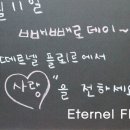 11일
빼빼로데이~
떼르넬 플로르에서
사랑"을 전하세요
Eternel Fl